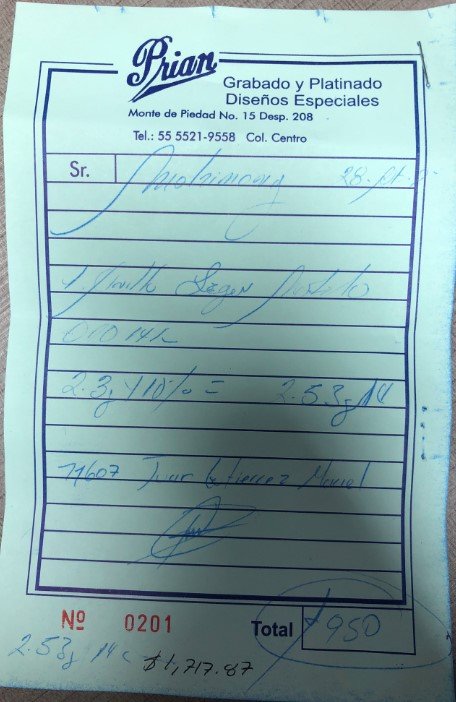 Prian
Grabado y Platinado
Diseños Especiales
Monte de Piedad No. 15 Desp. 208
Tel.: 55 5521-9558 Col. Centro
Sr.
28
1 Anillo Según Modelo
ORO 14k
2.3g y 10% = 2.53g 14
Juan Gutierrez
Nº 0201
Total 950
2.53g 14k $1,717.87